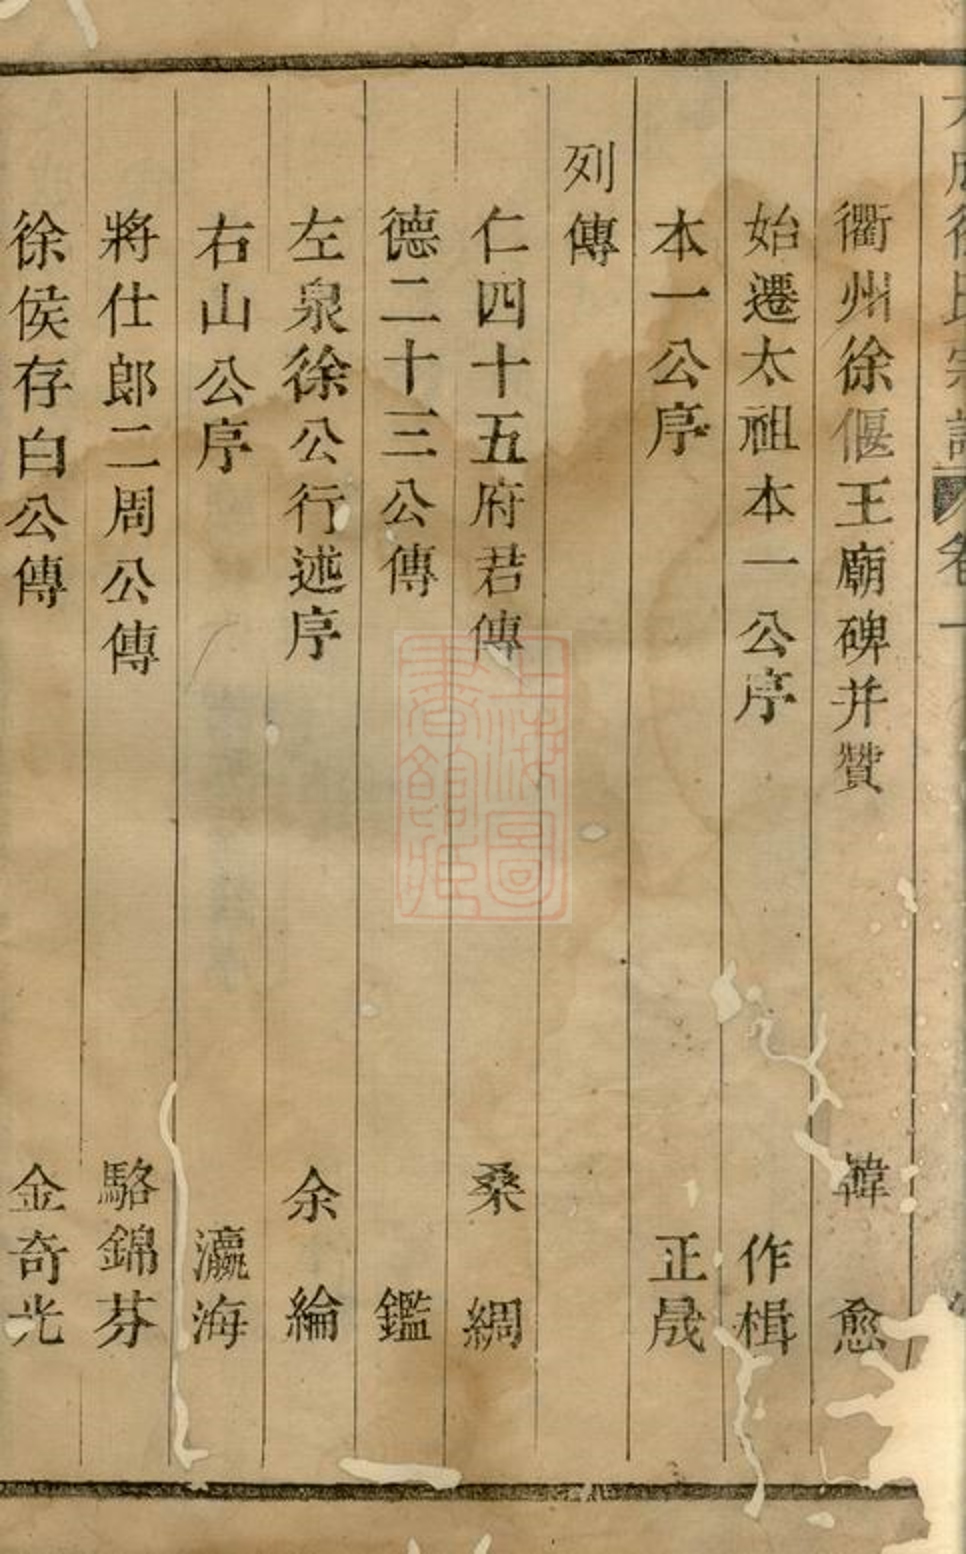 徐氏宗譜 卷一
衢州徐偃王廟碑并贊 韓愈
始遷太祖本一公序 作楫
本一公序 正晟
列傳
仁四十五府君傳 桑綢
德二十三公傳 鑑
左泉徐公行述序 余綸
右山公序 瀛海
將仕郎二周公傳 駱錦芬
徐侯存白公傳 金奇光
上海圖書館藏